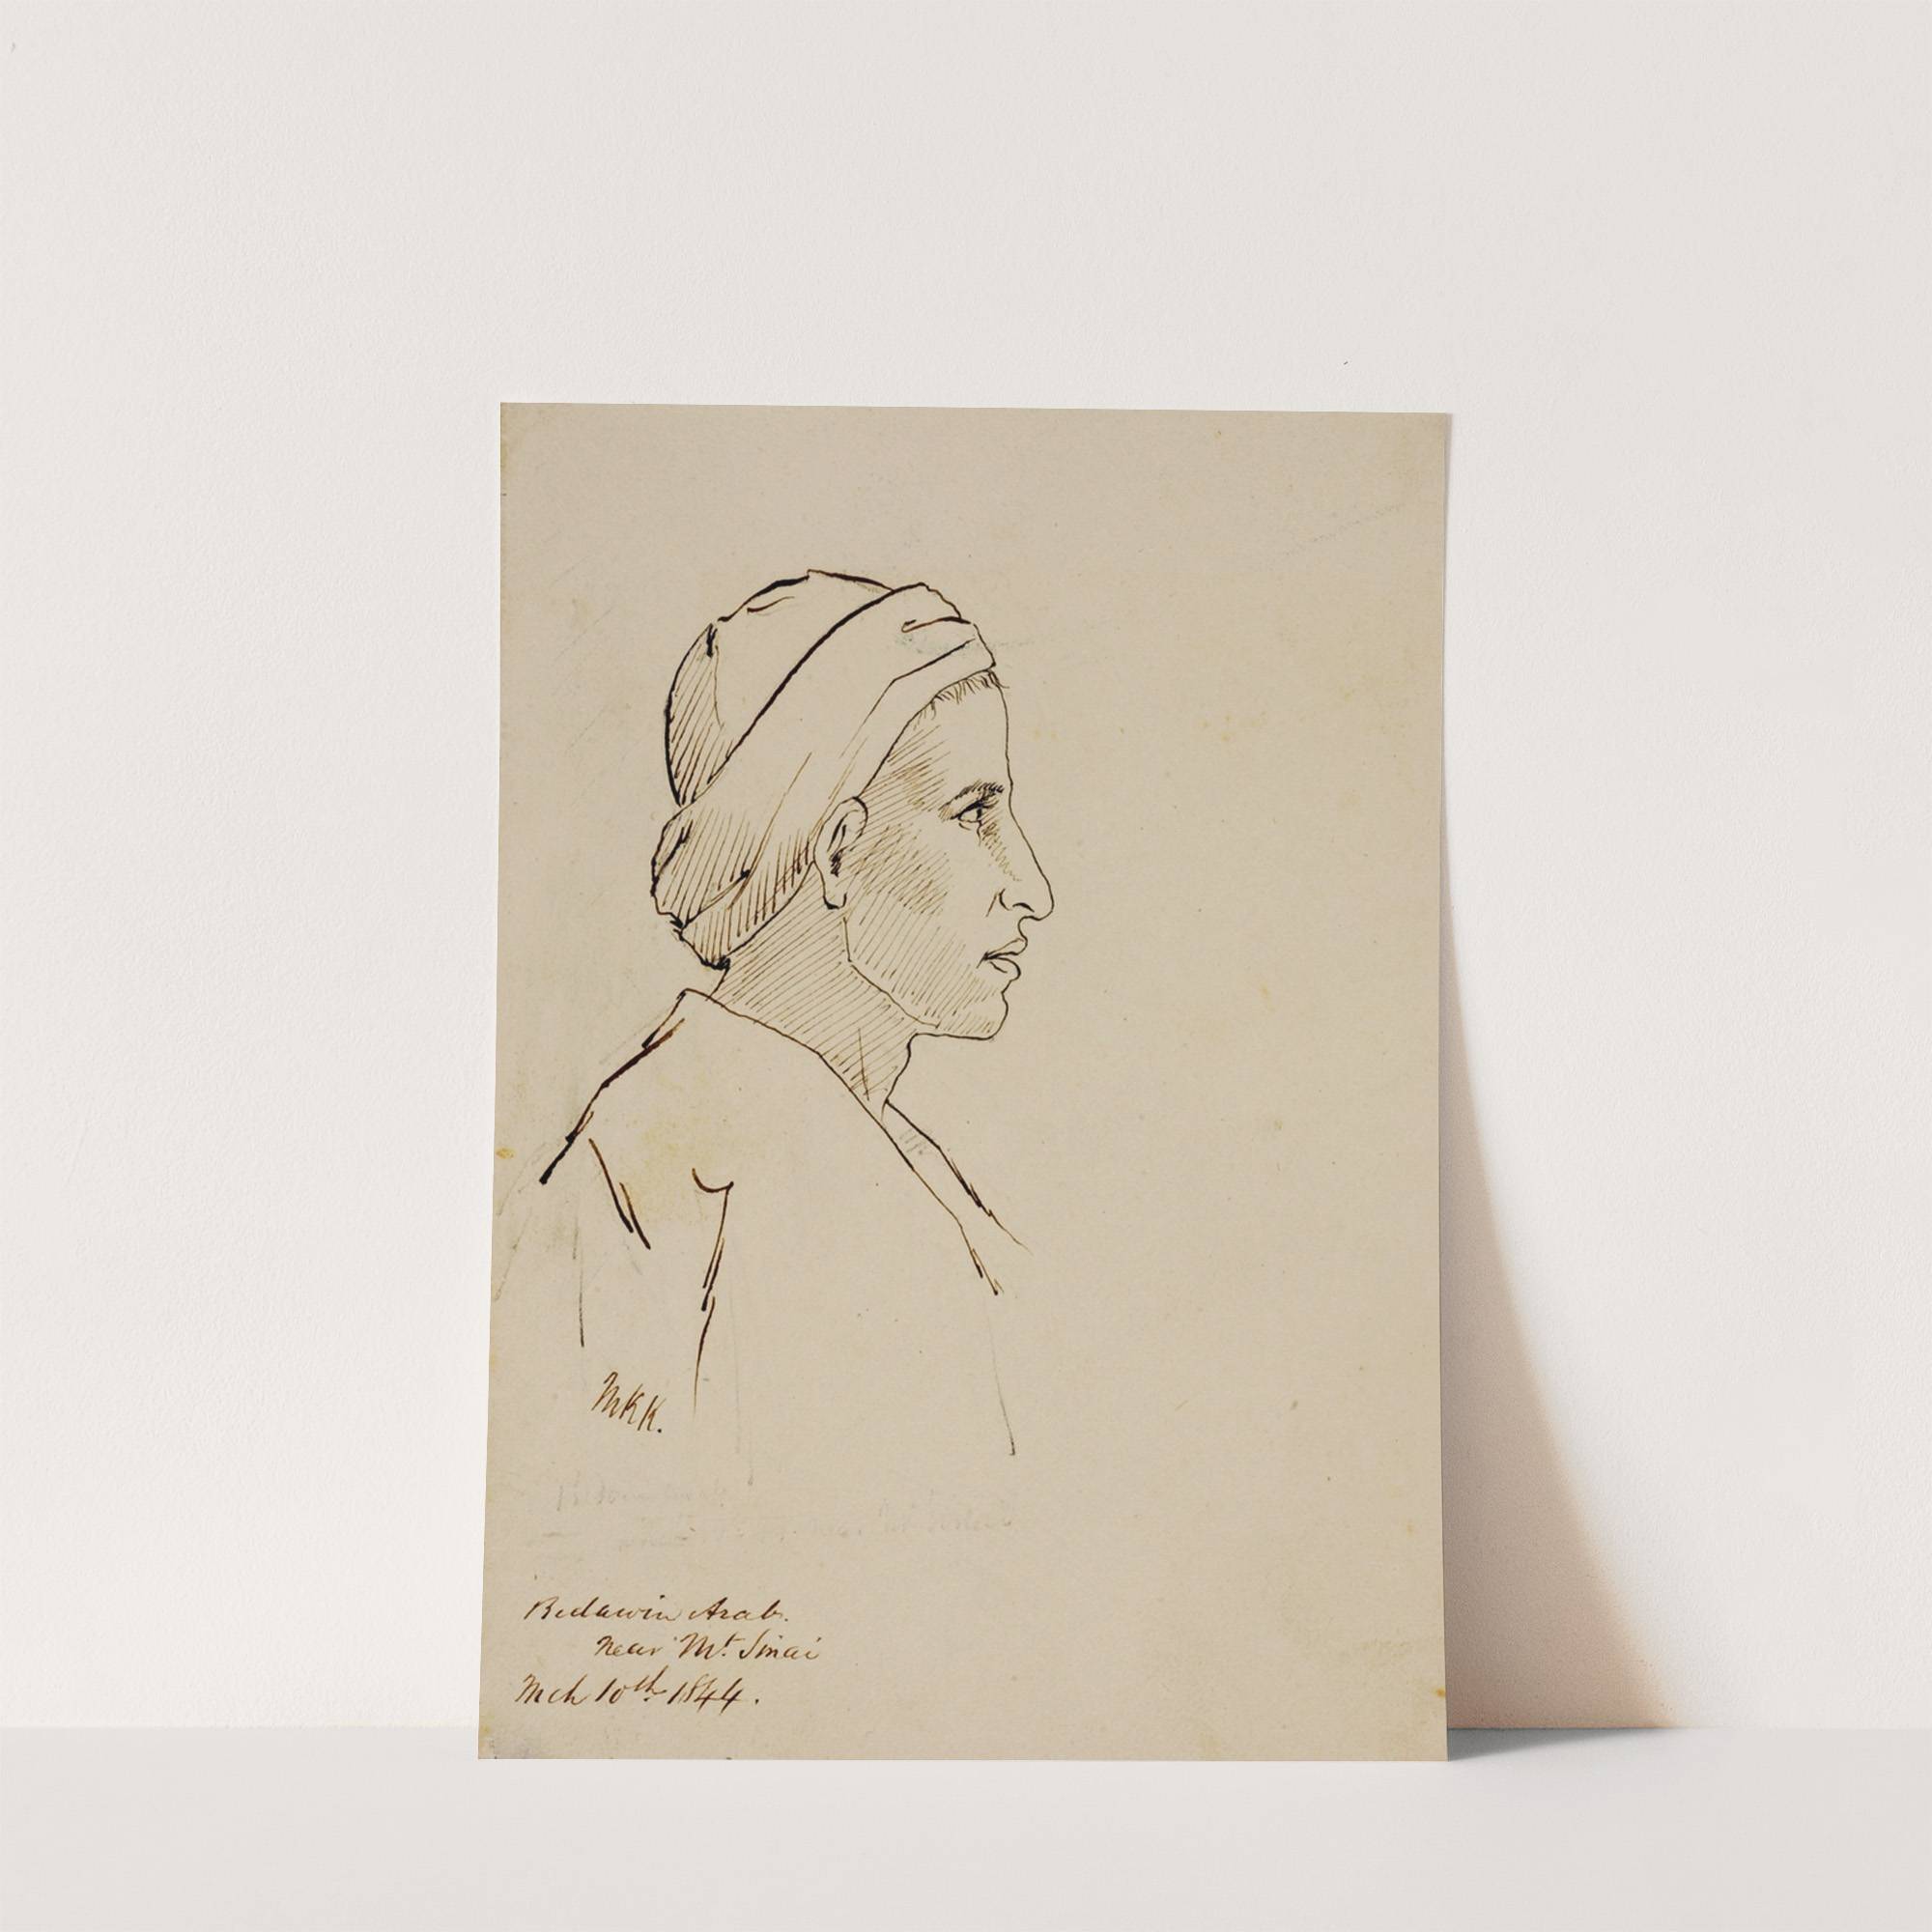 MKK.
Bedawin Arab.
near Mt. Sinai
Mch 10th 1844.